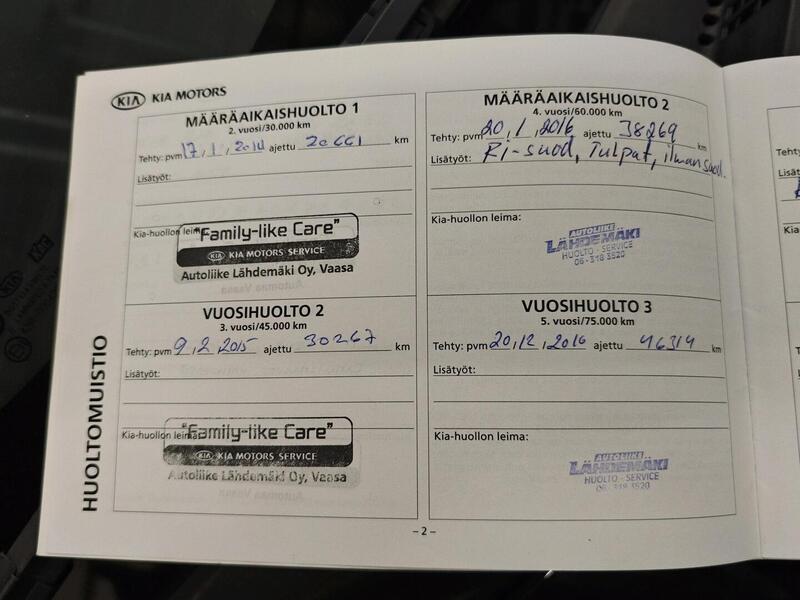 KIA KIA MOTORS
MÄÄRÄAIKAISHUOLTO 1
2. vuosi/30.000 km
Tehty: pvm 17, 1, 2014 ajettu 20661 km
Lisätyöt:
Kia-huollon leima:
"Family-like Care"
KIA KIA MOTORS SERVICE
Autoliike Lähdemäki Oy, Vaasa
VUOSIHUOLTO 2
3. vuosi/45.000 km
Tehty: pvm 9, 2, 2015 ajettu 30267 km
Lisätyöt:
Kia-huollon leima:
"Family-like Care"
KIA KIA MOTORS SERVICE
Autoliike Lähdemäki Oy, Vaasa
MÄÄRÄAIKAISHUOLTO 2
4. vuosi/60.000 km
Tehty: pvm 20, 1, 2016 ajettu 38269 km
Lisätyöt: Ri-suod, Tulpat, ilmansuod.
Kia-huollon leima:
AUTOLIIKE
LÄHDEMÄKI
HUOLTO - SERVICE
06-318 3520
VUOSIHUOLTO 3
5. vuosi/75.000 km
Tehty: pvm 20, 12, 2016 ajettu 46314 km
Lisätyöt:
Kia-huollon leima:
AUTOLIIKE
LÄHDEMÄKI
HUOLTO - SERVICE
06-318 3520
HUOLTOMUISTIO
– 2 –